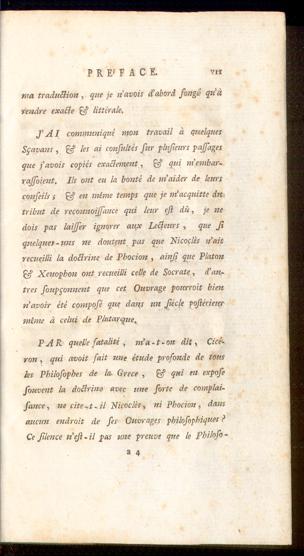 PRÉFACE. vij
ma traduction, que je n'avois d'abord songé qu'à
rendre exacte & littérale.
J'AI communiqué mon travail à quelques
Sçavans, & les ai consultés sur plusieurs passages
que j'avois copiés exactement, & qui m'embar-
rassoient. Ils ont eu la bonté de m'aider de leurs
conseils; & en même temps que je m'acquitte du
tribut de reconnoissance qui leur est dû, je ne
dois pas laisser ignorer aux Lecteurs, que si
quelques-uns ne doutent pas que Nicoclès n'ait
recueilli la doctrine de Phocion, ainsi que Platon
& Xenophon ont recueilli celle de Socrate, d'au-
tres soupçonnent que cet Ouvrage pourroit bien
n'avoir été composé que dans un siècle postérieur
même à celui de Plutarque.
PAR quelle fatalité, m'a-t-on dit, Cicé-
ron, qui avoit fait une étude profonde de tous
les Philosophes de la Grece, & qui en expose
souvent la doctrine avec une sorte de complai-
sance, ne cite-t-il Nicoclès, ni Phocion, dans
aucun endroit de ses Ouvrages philosophiques?
Ce silence n'est-il pas une preuve que le Philoso-
a 4